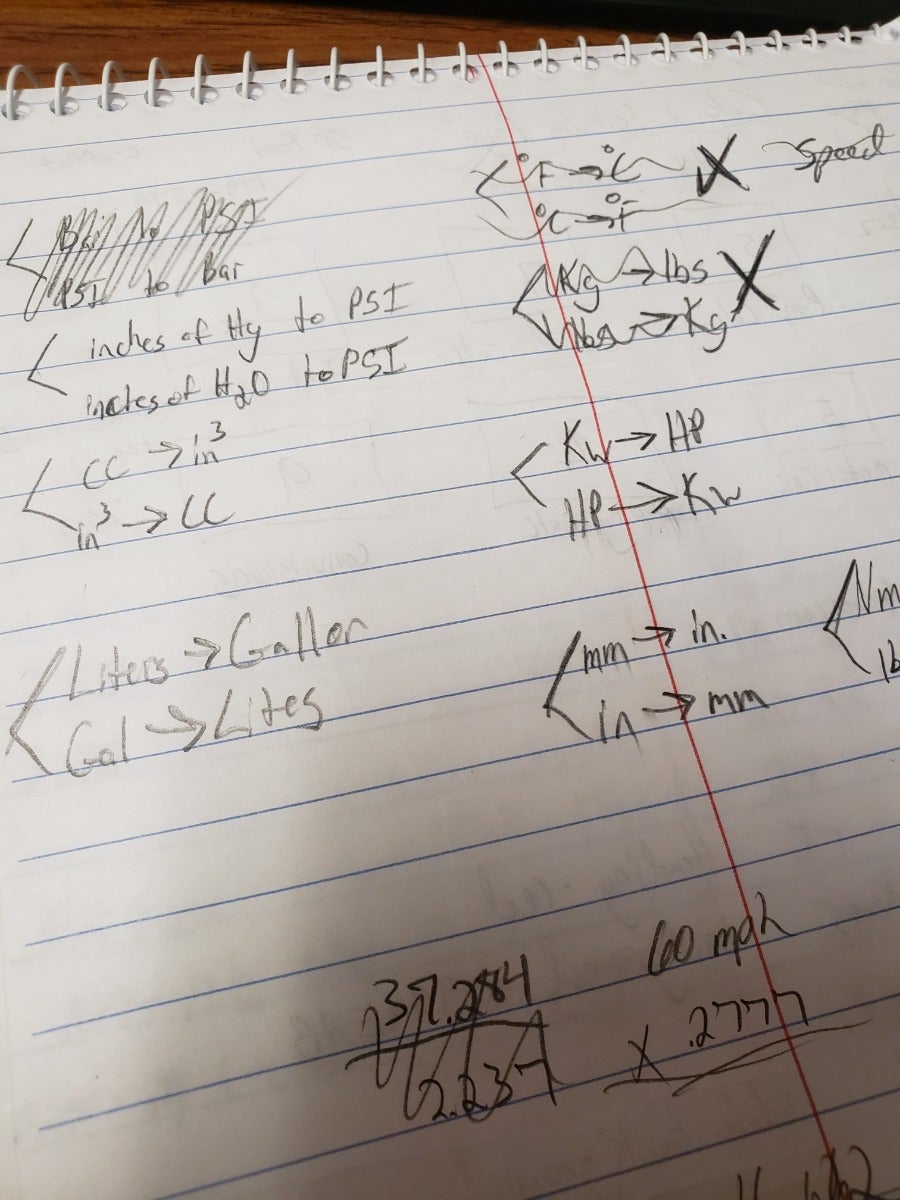 Bar to PSI
PSI to Bar
inches of Hg to PSI
inches of H₂O to PSI
CC → in³
in³ → CC
Liters → Gallon
Gal → Lites
°F → °C X Speed
°C → °F
Kg → lbs X
lbs → Kg
Kw → HP
HP → Kw
mm → in.
in → mm
Nm
lb
37.284
2.237
60 mph
x .2777